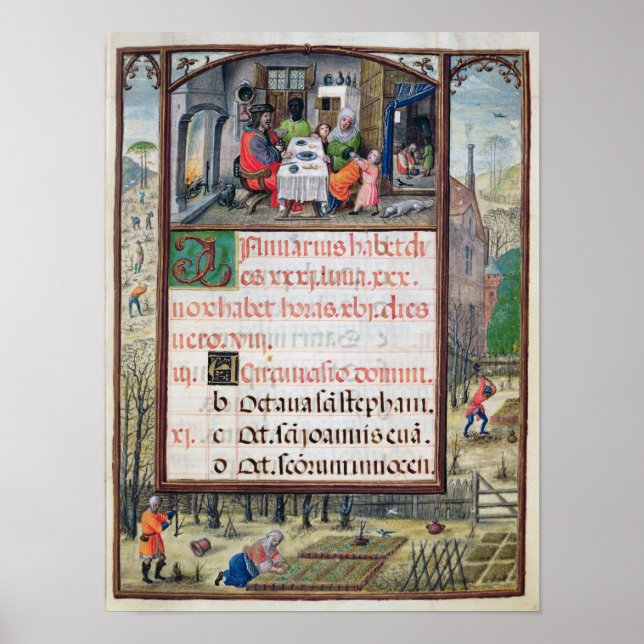 Januarius habet di
es xxxj. luna. xxx.
nox habet horas. xbj. dies
uero. viij.
iij. A Circuncisio domini.
b Octaua sc̄i stephani.
xj. c Oct. sc̄i joannis euā.
d Oct. sc̄orum innocen.